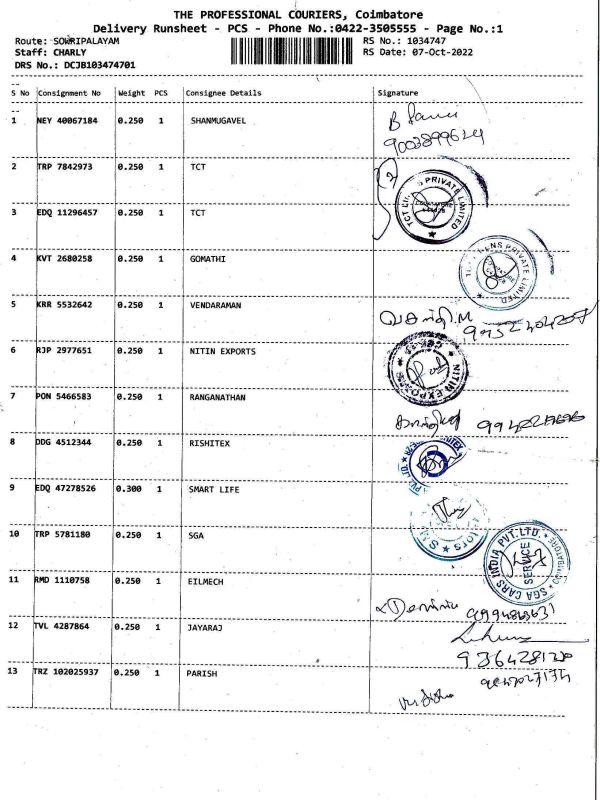 THE PROFESSIONAL COURIERS, Coimbatore
Delivery Runsheet - PCS - Phone No.:0422-3505555 - Page No.:1
Route: SOWRIPALAYAM RS No.: 1034747
Staff: CHARLY RS Date: 07-Oct-2022
DRS No.: DCJB103474701
S No Consignment No Weight PCS Consignee Details Signature
1 NEY 40067184 0.250 1 SHANMUGAVEL
2 TRP 7842973 0.250 1 TCT
PRIVATE LIMITED
3 EDQ 11296457 0.250 1 TCT
4 KVT 2680258 0.250 1 GOMATHI
PRIVATE LIMITED
5 KRR 5532642 0.250 1 VENDARAMAN
6 RJP 2977651 0.250 1 NITIN EXPORTS
NITIN EXPORTS
7 PON 5466583 0.250 1 RANGANATHAN
8 DDG 4512344 0.250 1 RISHITEX
9 EDQ 47278526 0.300 1 SMART LIFE
10 TRP 5781180 0.250 1 SGA
SGA CARS INDIA PVT.LTD.
SERVICE
11 RMD 1110758 0.250 1 EILMECH
12 TVL 4287864 0.250 1 JAYARAJ
13 TRZ 102025937 0.250 1 PARISH